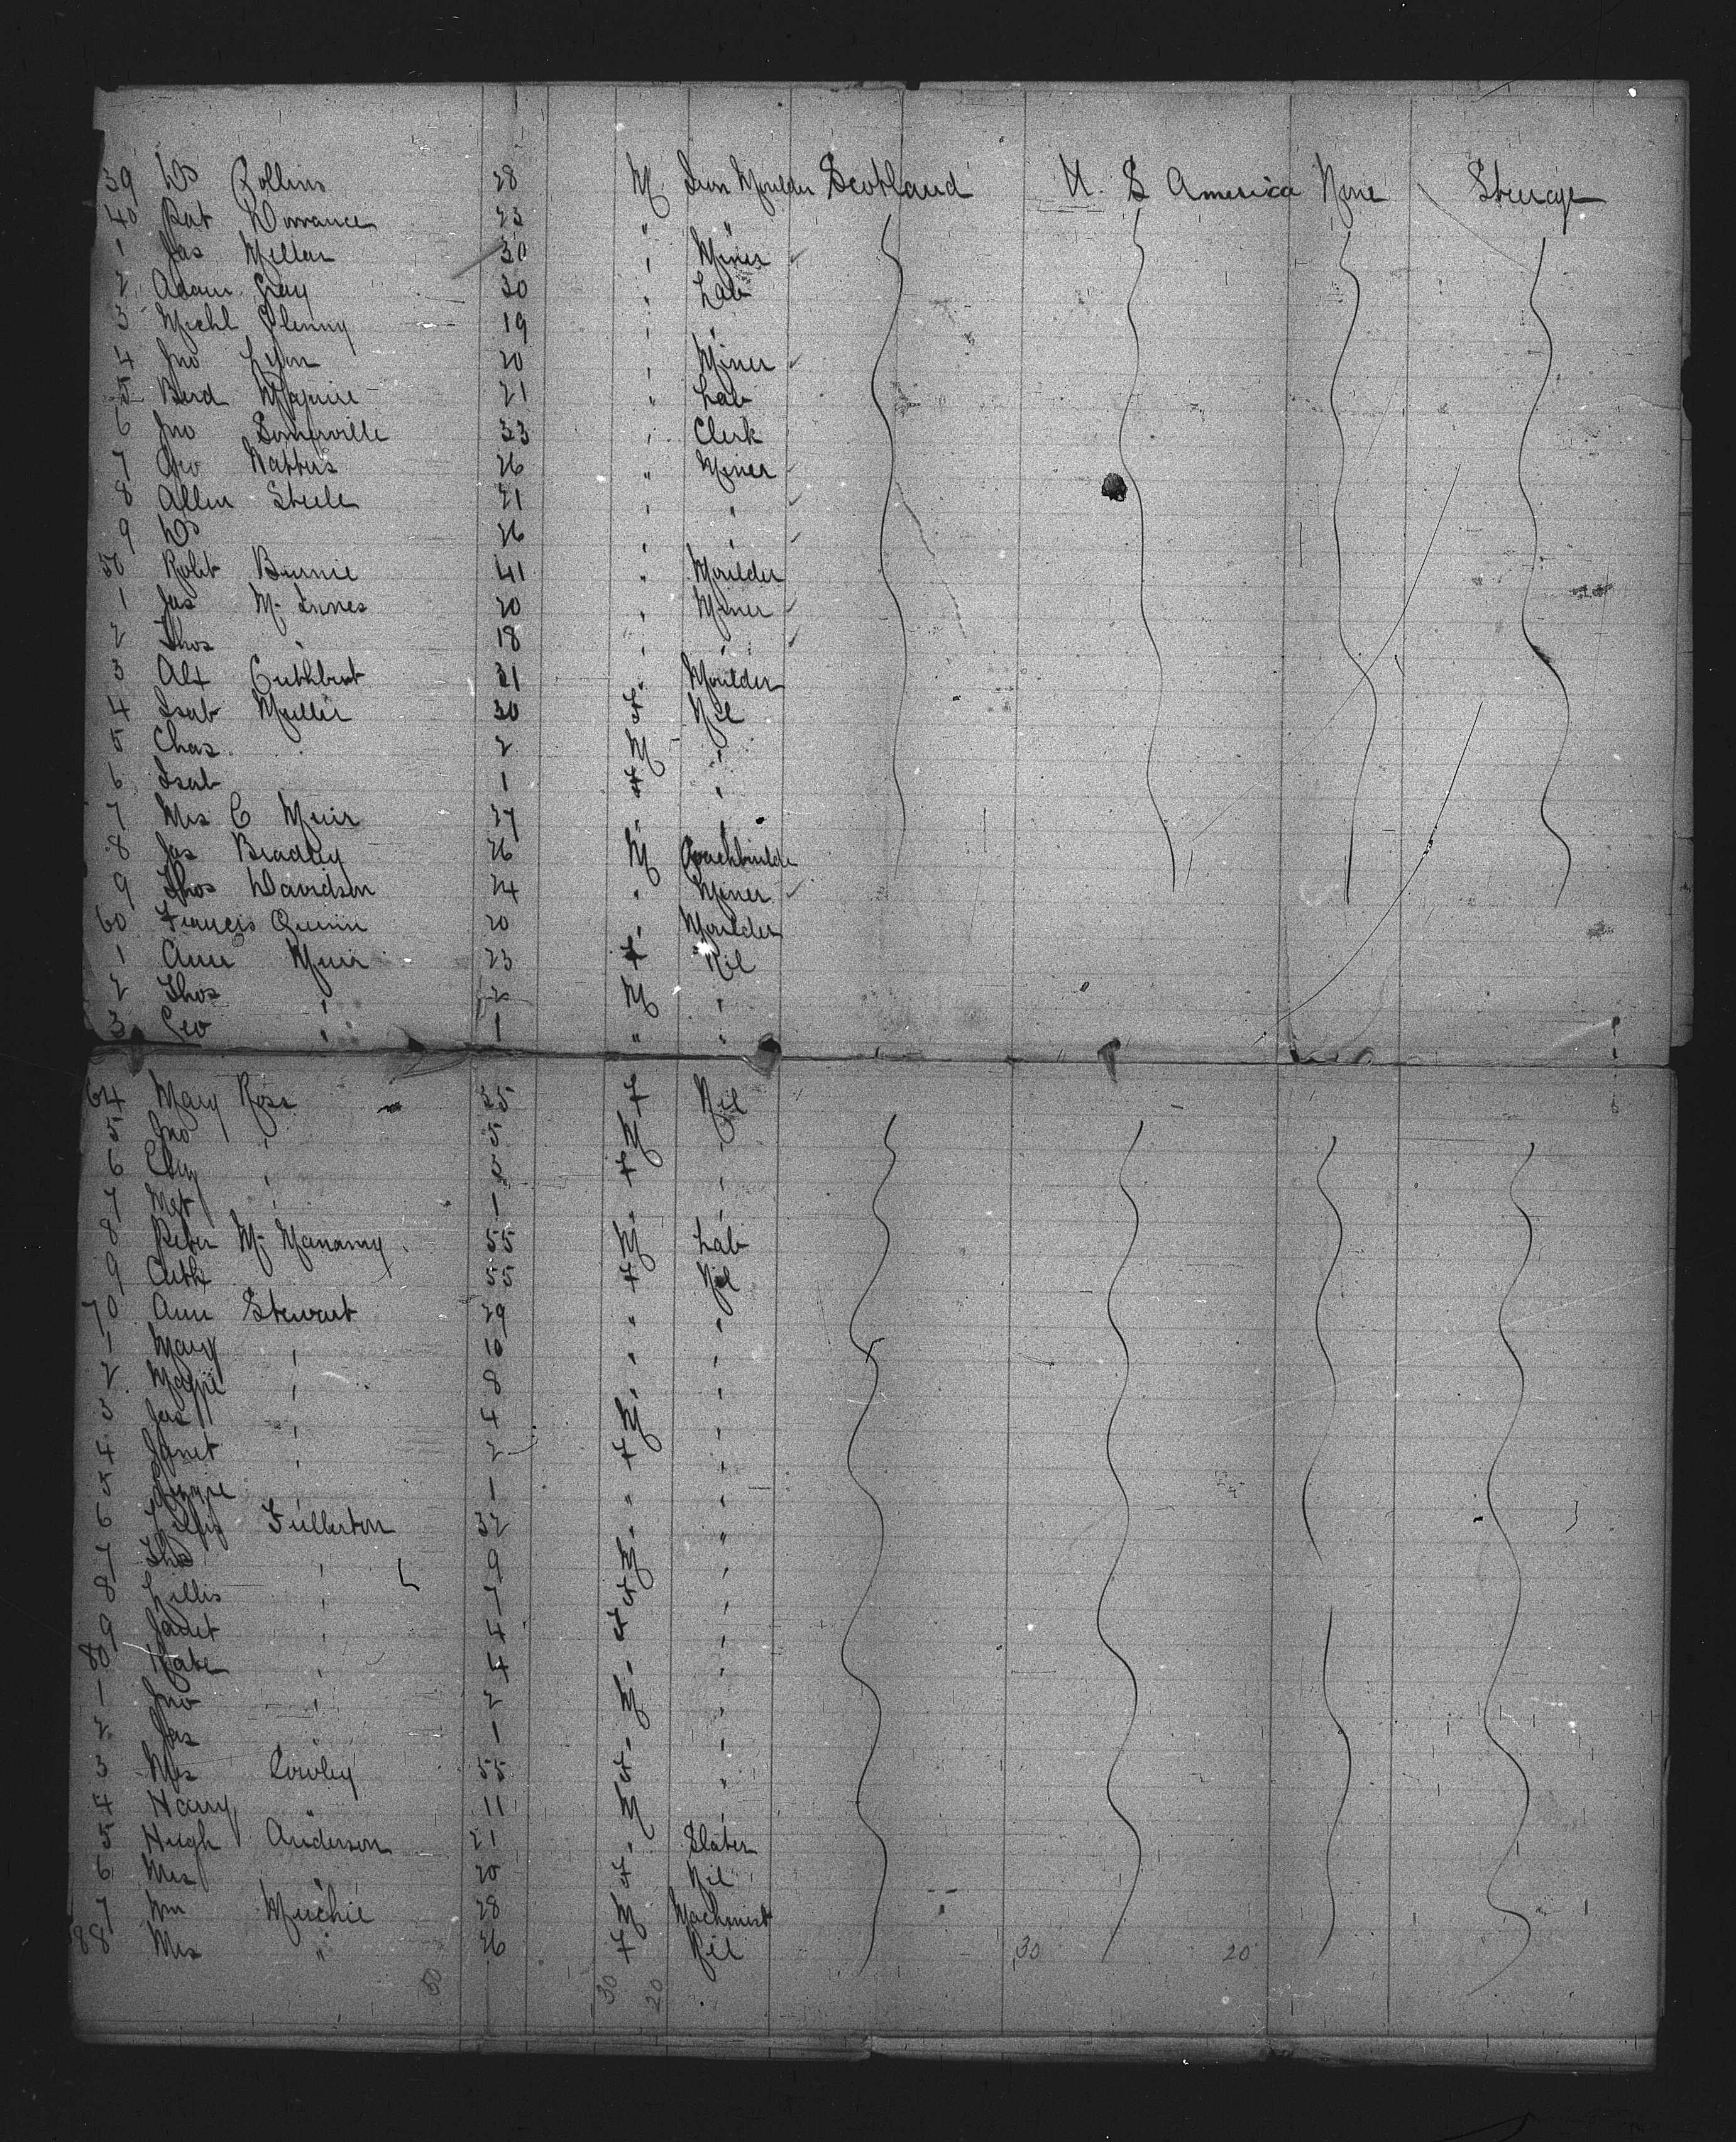 39 Do Rollins 28 M Iron Moulder Scotland U. S America None Steerage
40 Pat Dorrance 23 " "
1 Jas Millar 30 " Miner
2 Adam Gray 30 " Lab
3 Michl Glenny 19 " "
4 Jno Lyon 20 " Miner
5 Berd Maguire 21 " Lab
6 Jno Somerville 33 " Clerk
7 Geo Watters 26 " Miner
8 Allen Steele 21 " "
9 Do 26 " "
50 Robt Burnie 41 " Moulder
1 Jas Mc Innes 20 " Miner
2 Thos " 18 " "
3 Alx Cuthbert 31 " Moulder
4 Isab Muller 30 F Nil
5 Chas 2 M "
6 Isab 1 F "
7 Mrs C Muir 27 " "
8 Jas Bradley 26 M Coachbuilder
9 Thos Davidson 24 " Miner
60 Francis Quinn 20 " Moulder
1 Ann Muir 23 F Nil
2 Thos " 2 M "
3 Geo " 1 " "
64 Mary Ross 35 F Nil
5 Jno " 5 M "
6 " 3 F "
7 Mgt " 1 " "
8 Peter Mc Manamy 55 M Lab
9 Cath 55 F Nil
70 Ann Stewart 29 " "
1 Mary " 10 " "
2 Maggie " 8 " "
3 Jas " 4 M "
4 Janet " 2 F "
5 " 1 " "
6 Fullerton 32 " "
7 Thos " 9 M "
8 Lillis " 7 F "
9 Janet " 4 F "
80 Kate " 4 " "
1 Jno " 2 M "
2 Jas " 1 " "
3 Mrs Cowley 55 F "
4 Harry " 11 M "
5 Hugh Anderson 21 " Slater
6 Mrs " 20 F Nil
7 Wm Muchie 28 M Machinist
88 Mrs " 26 F Nil
50 30 20 30 20